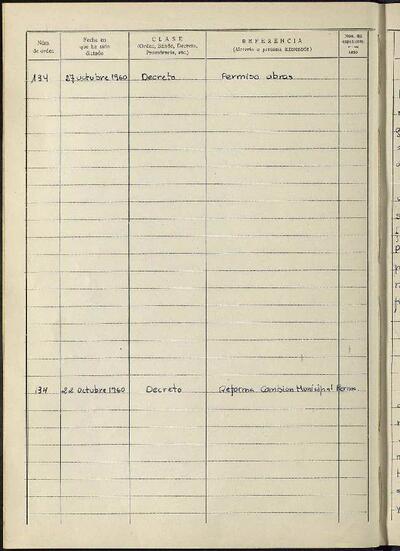 Núm. de orden
Fecha en que ha sido dictado
CLASE
(Orden, Bando, Decreto, Providencia, etc.)
REFERENCIA
(Materia o persona interesada)
134 27 octubre 1960 Decreto Permiso obras
134 22 octubre 1960 Decreto Reforma Comision Municipal Perma.